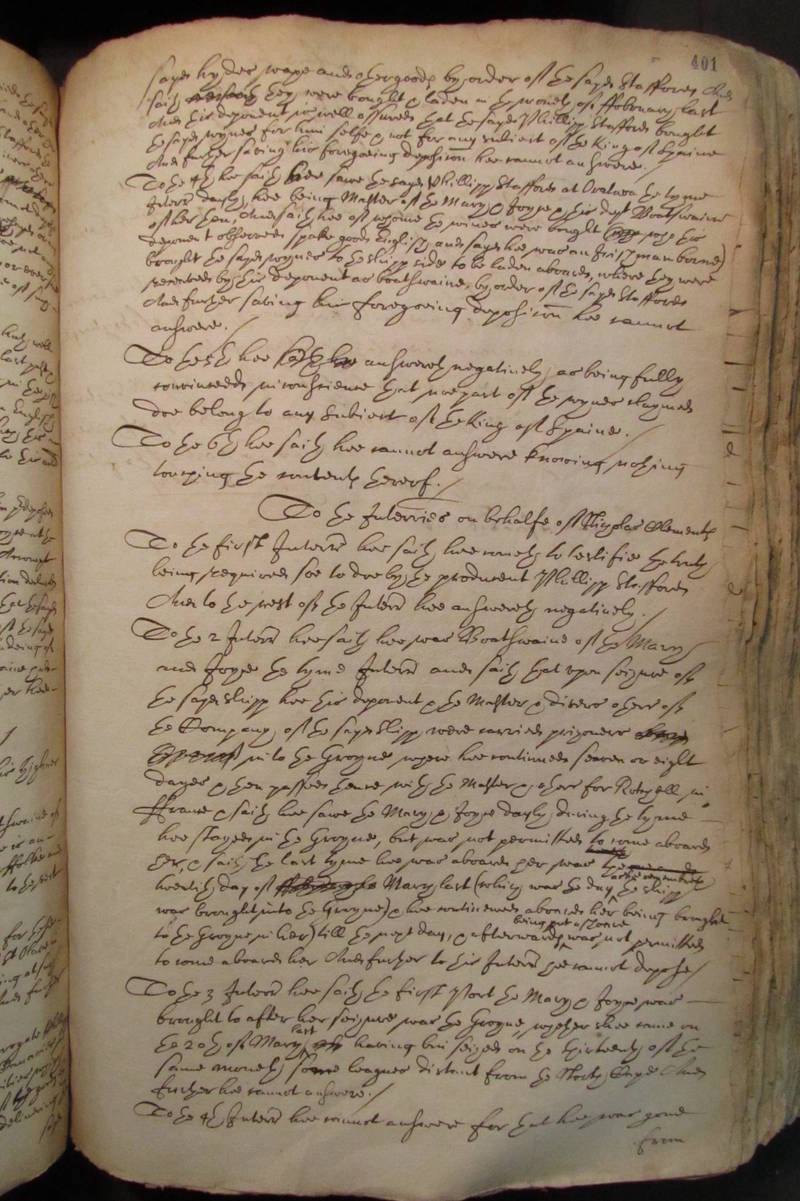 401
sayd hydes wage and other goods by order of the sayd Stafford And
saith they were bought & laden in the moneth of ffebruary last
And this deponent is well assured that the sayd Phillipp Stafford bought
the sayd wynes for him selfe & not for any subiect of the King of Spaine
And further saving his foregoeing deposicon hee cannot answere./
To the 4th he saith hee sawe the sayd Phillipp Stafford at Oratava the tyme
Interr dayly, hee being Master of the Mary & Joyce & this dept Boatswaine
of her then, And saith hee of whome the wines were bought (whoe this
deponent observed spake good English, and sayd hee was an Irishman borne)
brought the sayd wynes to the shipp side to be laden aboard, where they were
received by this deponent as boatswaine, by order of the sayd Stafford
And further saving his foregoeing deposicon hee cannot
answere./
To the 5th hee answereth negatively, as being fully
convinced in conscience that noe part of the wynes claymed
doe belong to any subiect of the King of Spaine./
To the 6th hee saith hee cannot answere knowing nothing
touching the contents hereof./
To the Interries on behalfe of Nicholas Clements
To the first Interr hee saith hee cometh to testifie the truth
being required soe to doe by the producent Phillipp Stafford
And to the rest of the Interr hee answereth negatively./
To the 2 Interr hee saith hee was Boatswaine of the Mary
and Joyce the tyme Interr and saith that upon seizure of
the sayd shipp hee this deponent & the Master & divers others of
the Company of the sayd shipp were carried prisoners
into the Groyne where hee continued seaven or eight
dayes & then passed thence with the Master & others for Rochell in
ffrance & saith hee sawe the Mary & Joyce dayly during the tyme
hee stayed in the Groyne, but was not permitted to come aboard
her, & saith the last tyme hee was aboard her was the
twentith day of March last (which was the day the shipp
was brought into the Groyne) & hee continued aboard her being brought
to the Groyne in her) till the next day, & afterwards being put ashoare was not permitted
to come aboard her And further to this Interr hee cannot depose/
To the 3 Interr hee saith the first Port the Mary & Joyce was
brought to after her seizure was the Groyne, whether shee came on
the 20th of March last having bin seized on the thirteenth of the
same moneth some leagues distant from the North Cape And
further hee cannot answere./
To the 4th Interr hee cannot answere for that hee was gone
from